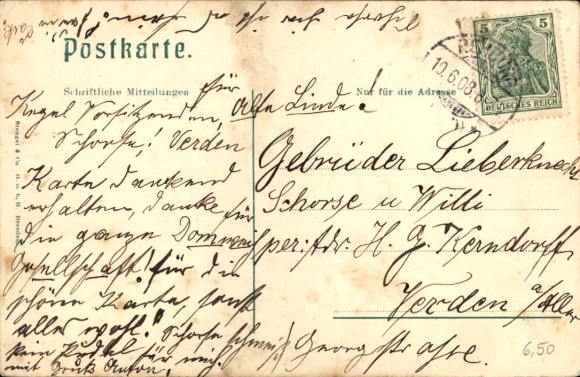 Postkarte.
Schriftliche Mitteilungen
Nur für die Adresse
5 5
DEUTSCHES REICH
10.6.08
für
Kegel Vorsitzenden, Alte Linde!
Schorse! Verden
Karte dankend
erhalten, danke für
die ganze
Gesellschaft! für die
schöne Karte, sonst
alles wohl! Schorse
kein Pudel für mich
mit Gruß Anton.
Gebrüder Lieberknecht
Schorse u Willi
per: Adr. H. G. Kerndorff
Verden a/Aller
Georgstrasse.
Stengel & Co G.m.b.H. Dresden
6,50